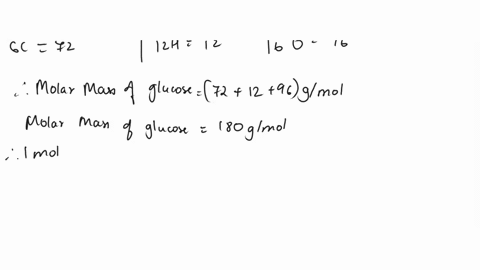 6C = 72 | 12H = 12 | 6O = 16
∴ Molar Mass of glucose = (72 + 12 + 96) g/mol
Molar Mass of glucose = 180 g/mol
∴ 1 mol